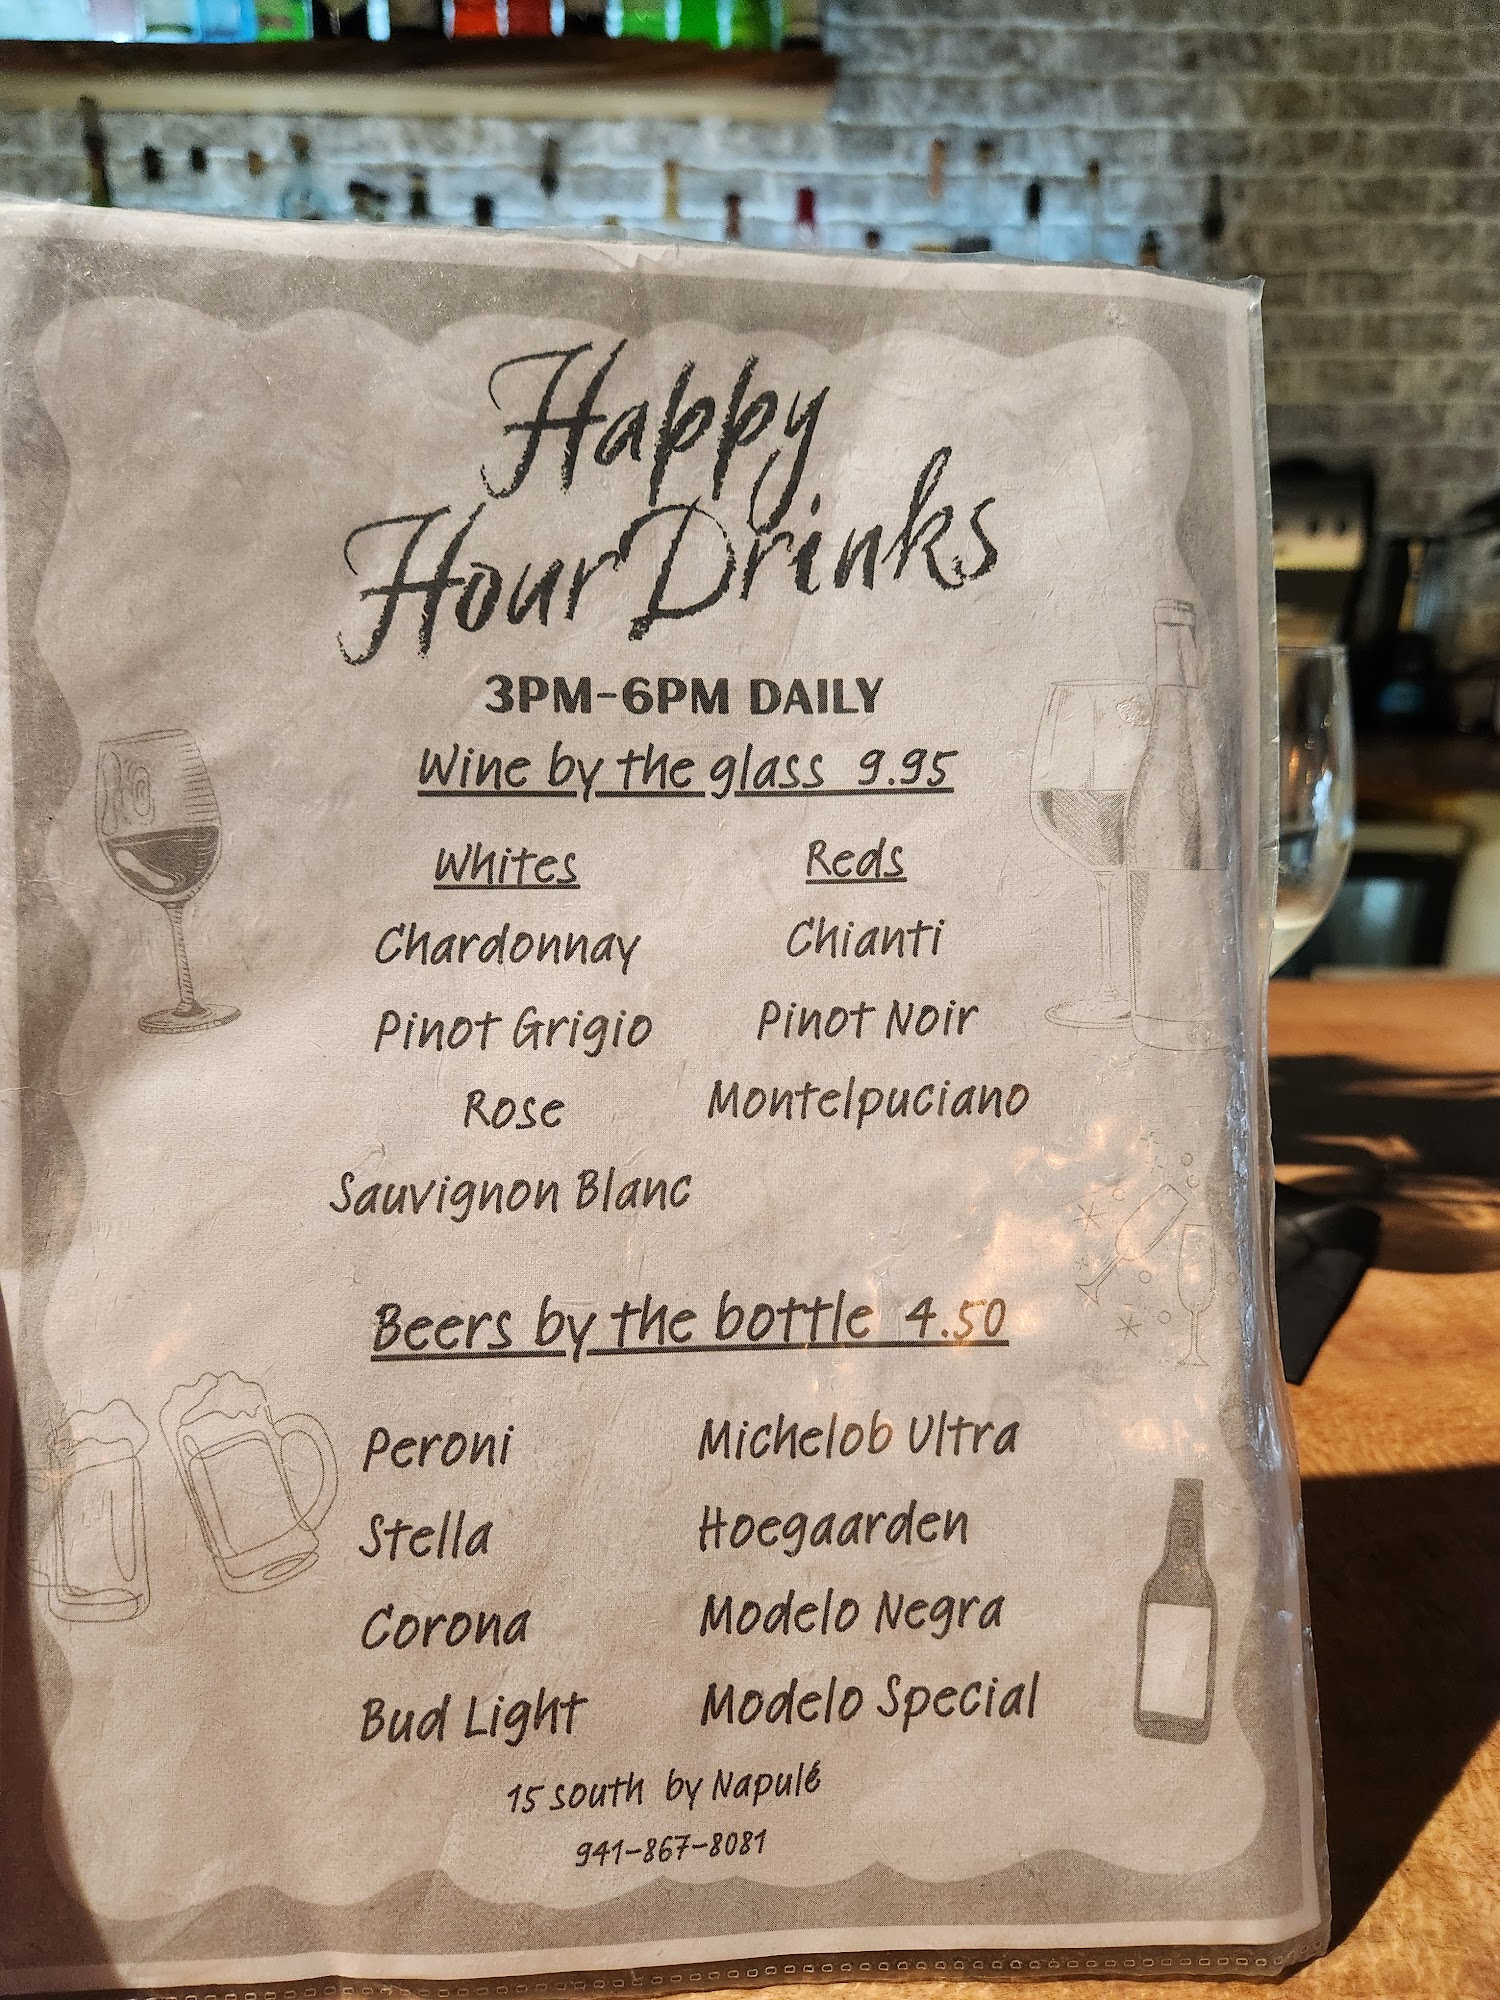 Happy
Hour Drinks
3PM-6PM DAILY
Wine by the glass 9.95
Whites Reds
Chardonnay Chianti
Pinot Grigio Pinot Noir
Rose Montelpuciano
Sauvignon Blanc
Beers by the bottle 4.50
Peroni Michelob Ultra
Stella Hoegaarden
Corona Modelo Negra
Bud Light Modelo Special
15 south by Napulé
941-867-8081